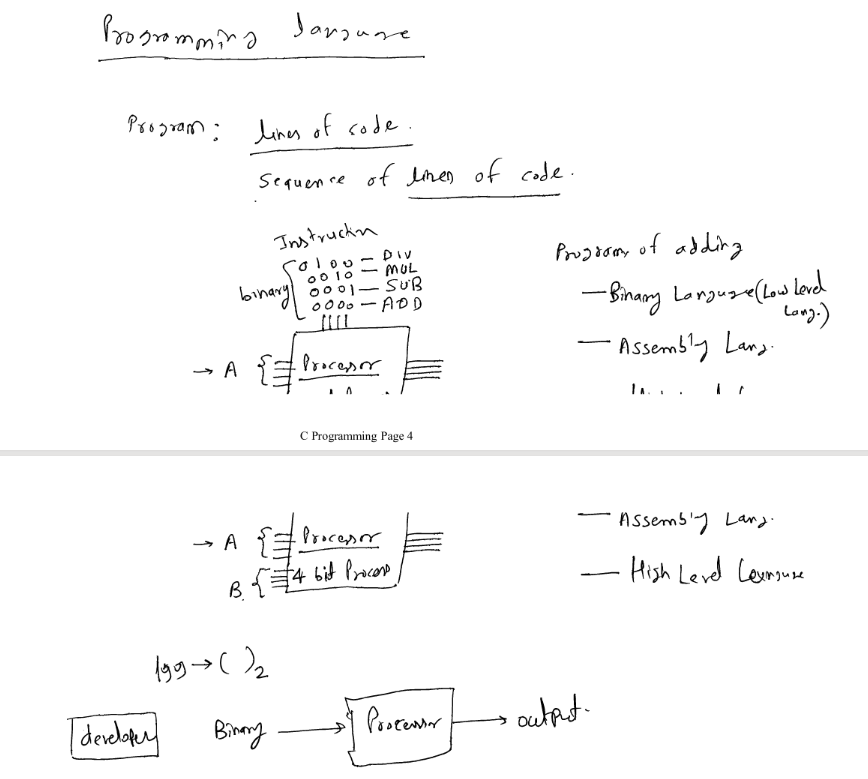 Programming language
Program: lines of code.
Sequence of lines of code.
Instructn
binary
0100 - DIV
0010 - MUL
0001 - SUB
0000 - ADD
Program of adding
- Binary Language (Low Level
Lang.)
- Assembly Lang.
→ A { Processor
C Programming Page 4
→ A { Processor
B. { 4 bit Process
- Assembly Lang.
- High Level Language
199 → ( )2
developer Binary → Processor → output.